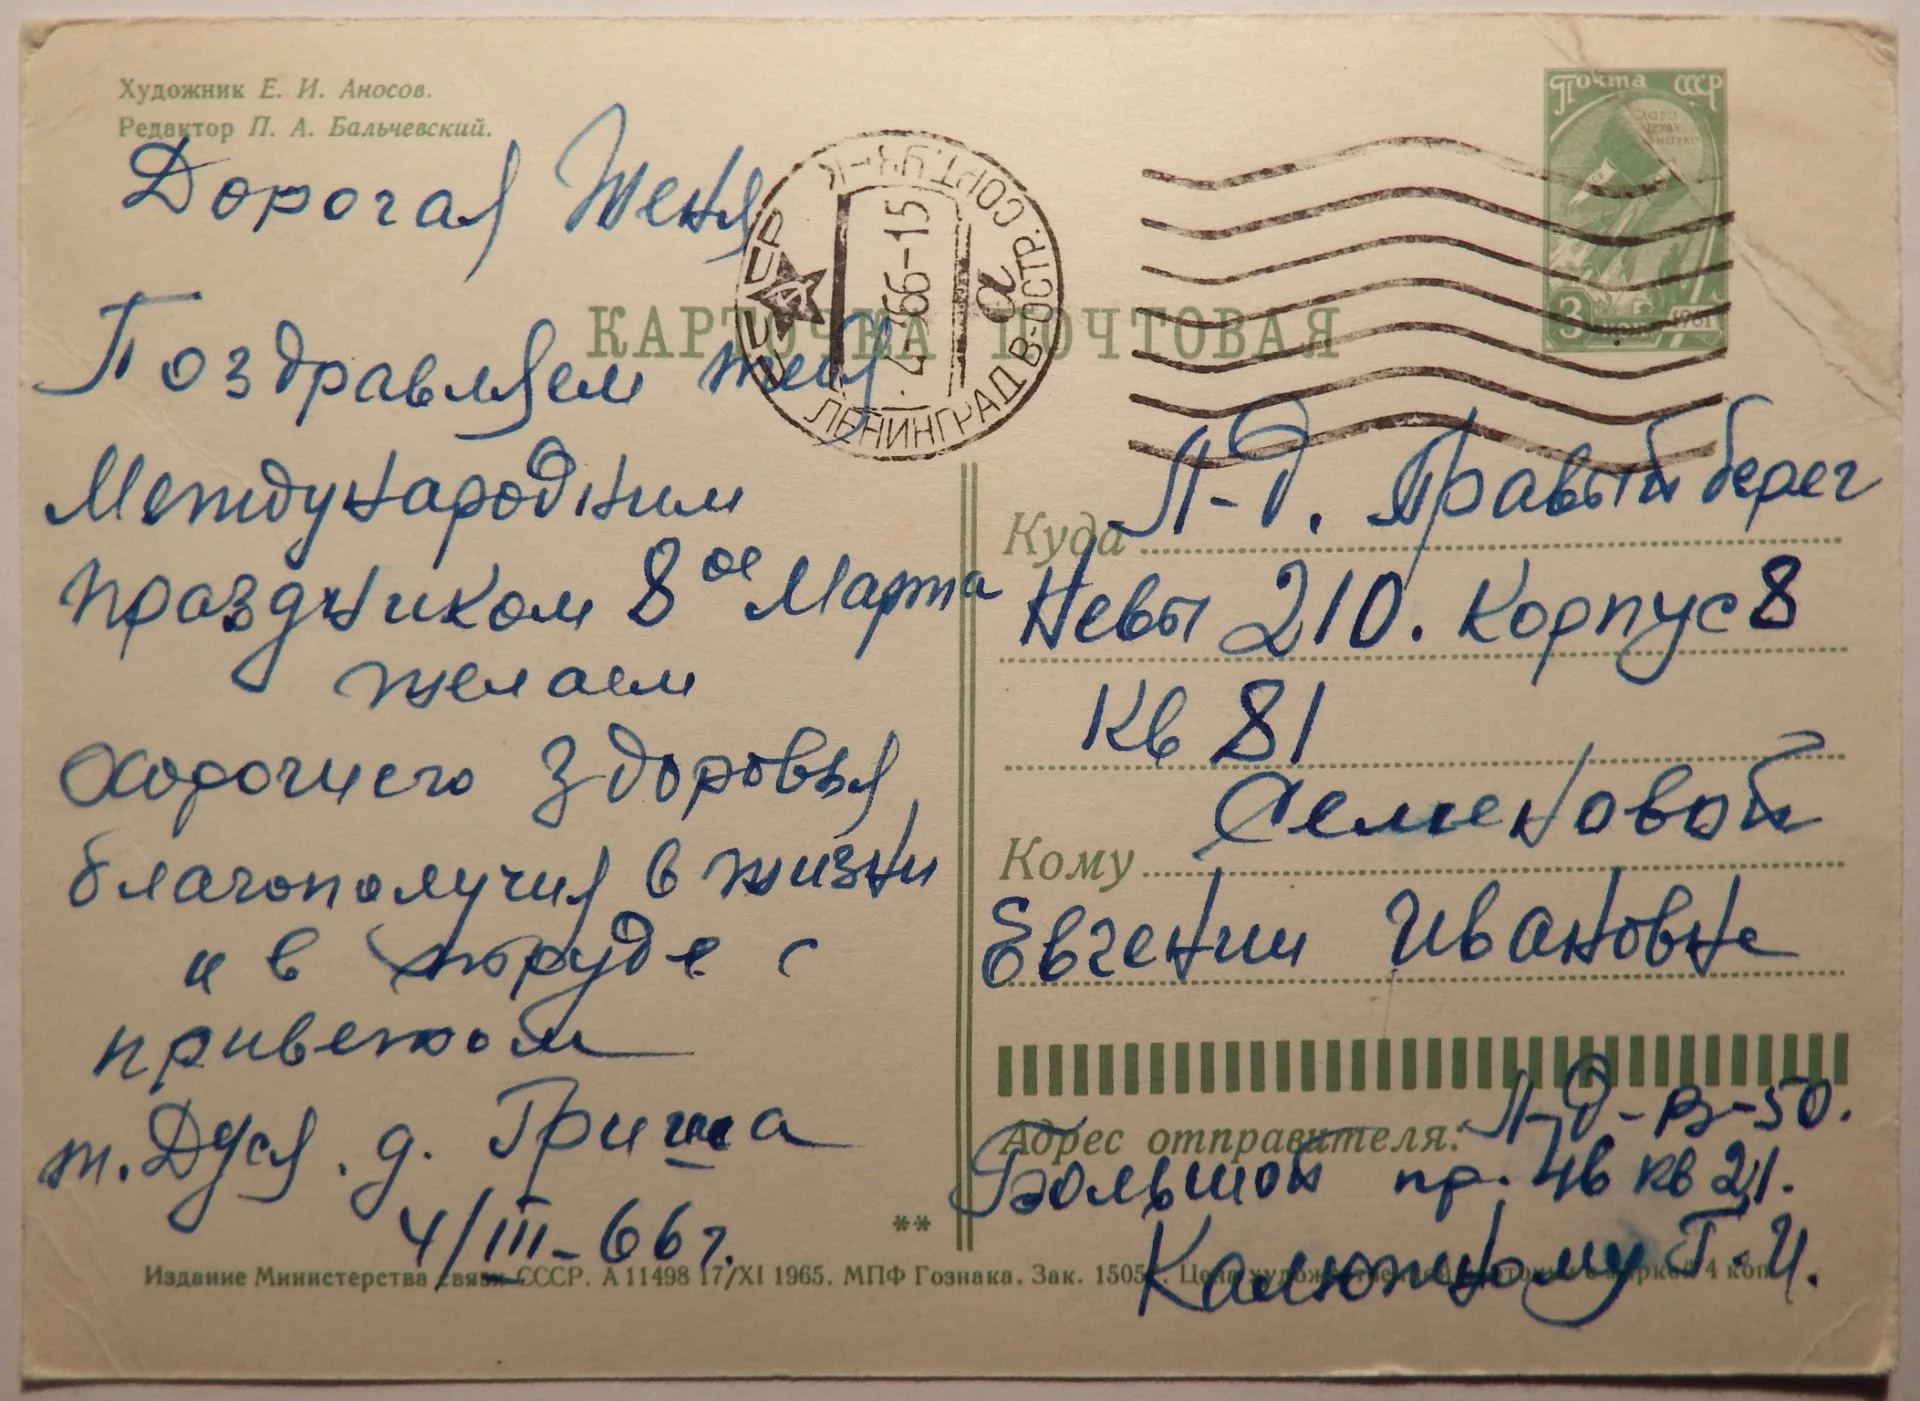 Художник Е. И. Аносов.
Редактор П. А. Бальчевский.
Дорогая Женя
Поздравляем тебя
Международним
праздником 8ое Марта
желаем
хорошего здоровья
благополучия в жизни
и в труде с
приветом
т. Дуся. д. Гриша
4/III-66 г.
Почта СССР
1961
СССР
ЛЕНИНГРАД В-ОСТР. СОРТ. УЧ-К
4 66-15
а
КАРТОЧКА ПОЧТОВАЯ
Куда Л-д. Правый берег
Невы 210. Корпус 8
кв 81
Семеновой
Кому
Евгении Ивановне
Адрес отправителя: Л-д-В-50.
Большой пр. 4в кв 21.
Г. И.
**
Издание Министерства связи СССР. А 11498 17/XI 1965. МПФ Гознака. Зак. 1505 Цена 4 коп.